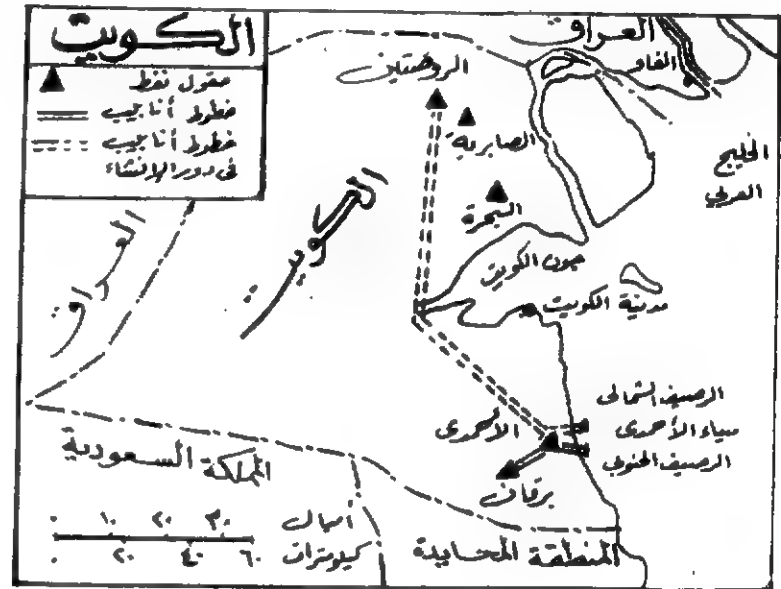 الكويت
حقول نفط
خطوط أنابيب
خطوط أنابيب
فى دور الإنشاء
العراق
الفاو
الروضتين
الصابرية
الخليج
العربي
البحرة
العراق
الكويت
جون الكويت
مدينة الكويت
الرصيف الشمالى
ميناء الأحمدى
الرصيف الجنوبي
الأحمدى
برقان
المملكة السعودية
المنطقة المحايدة
أميال
٠ ١٠ ٢٠ ٣٠
كيلومترات
٠ ٢٠ ٤٠ ٦٠